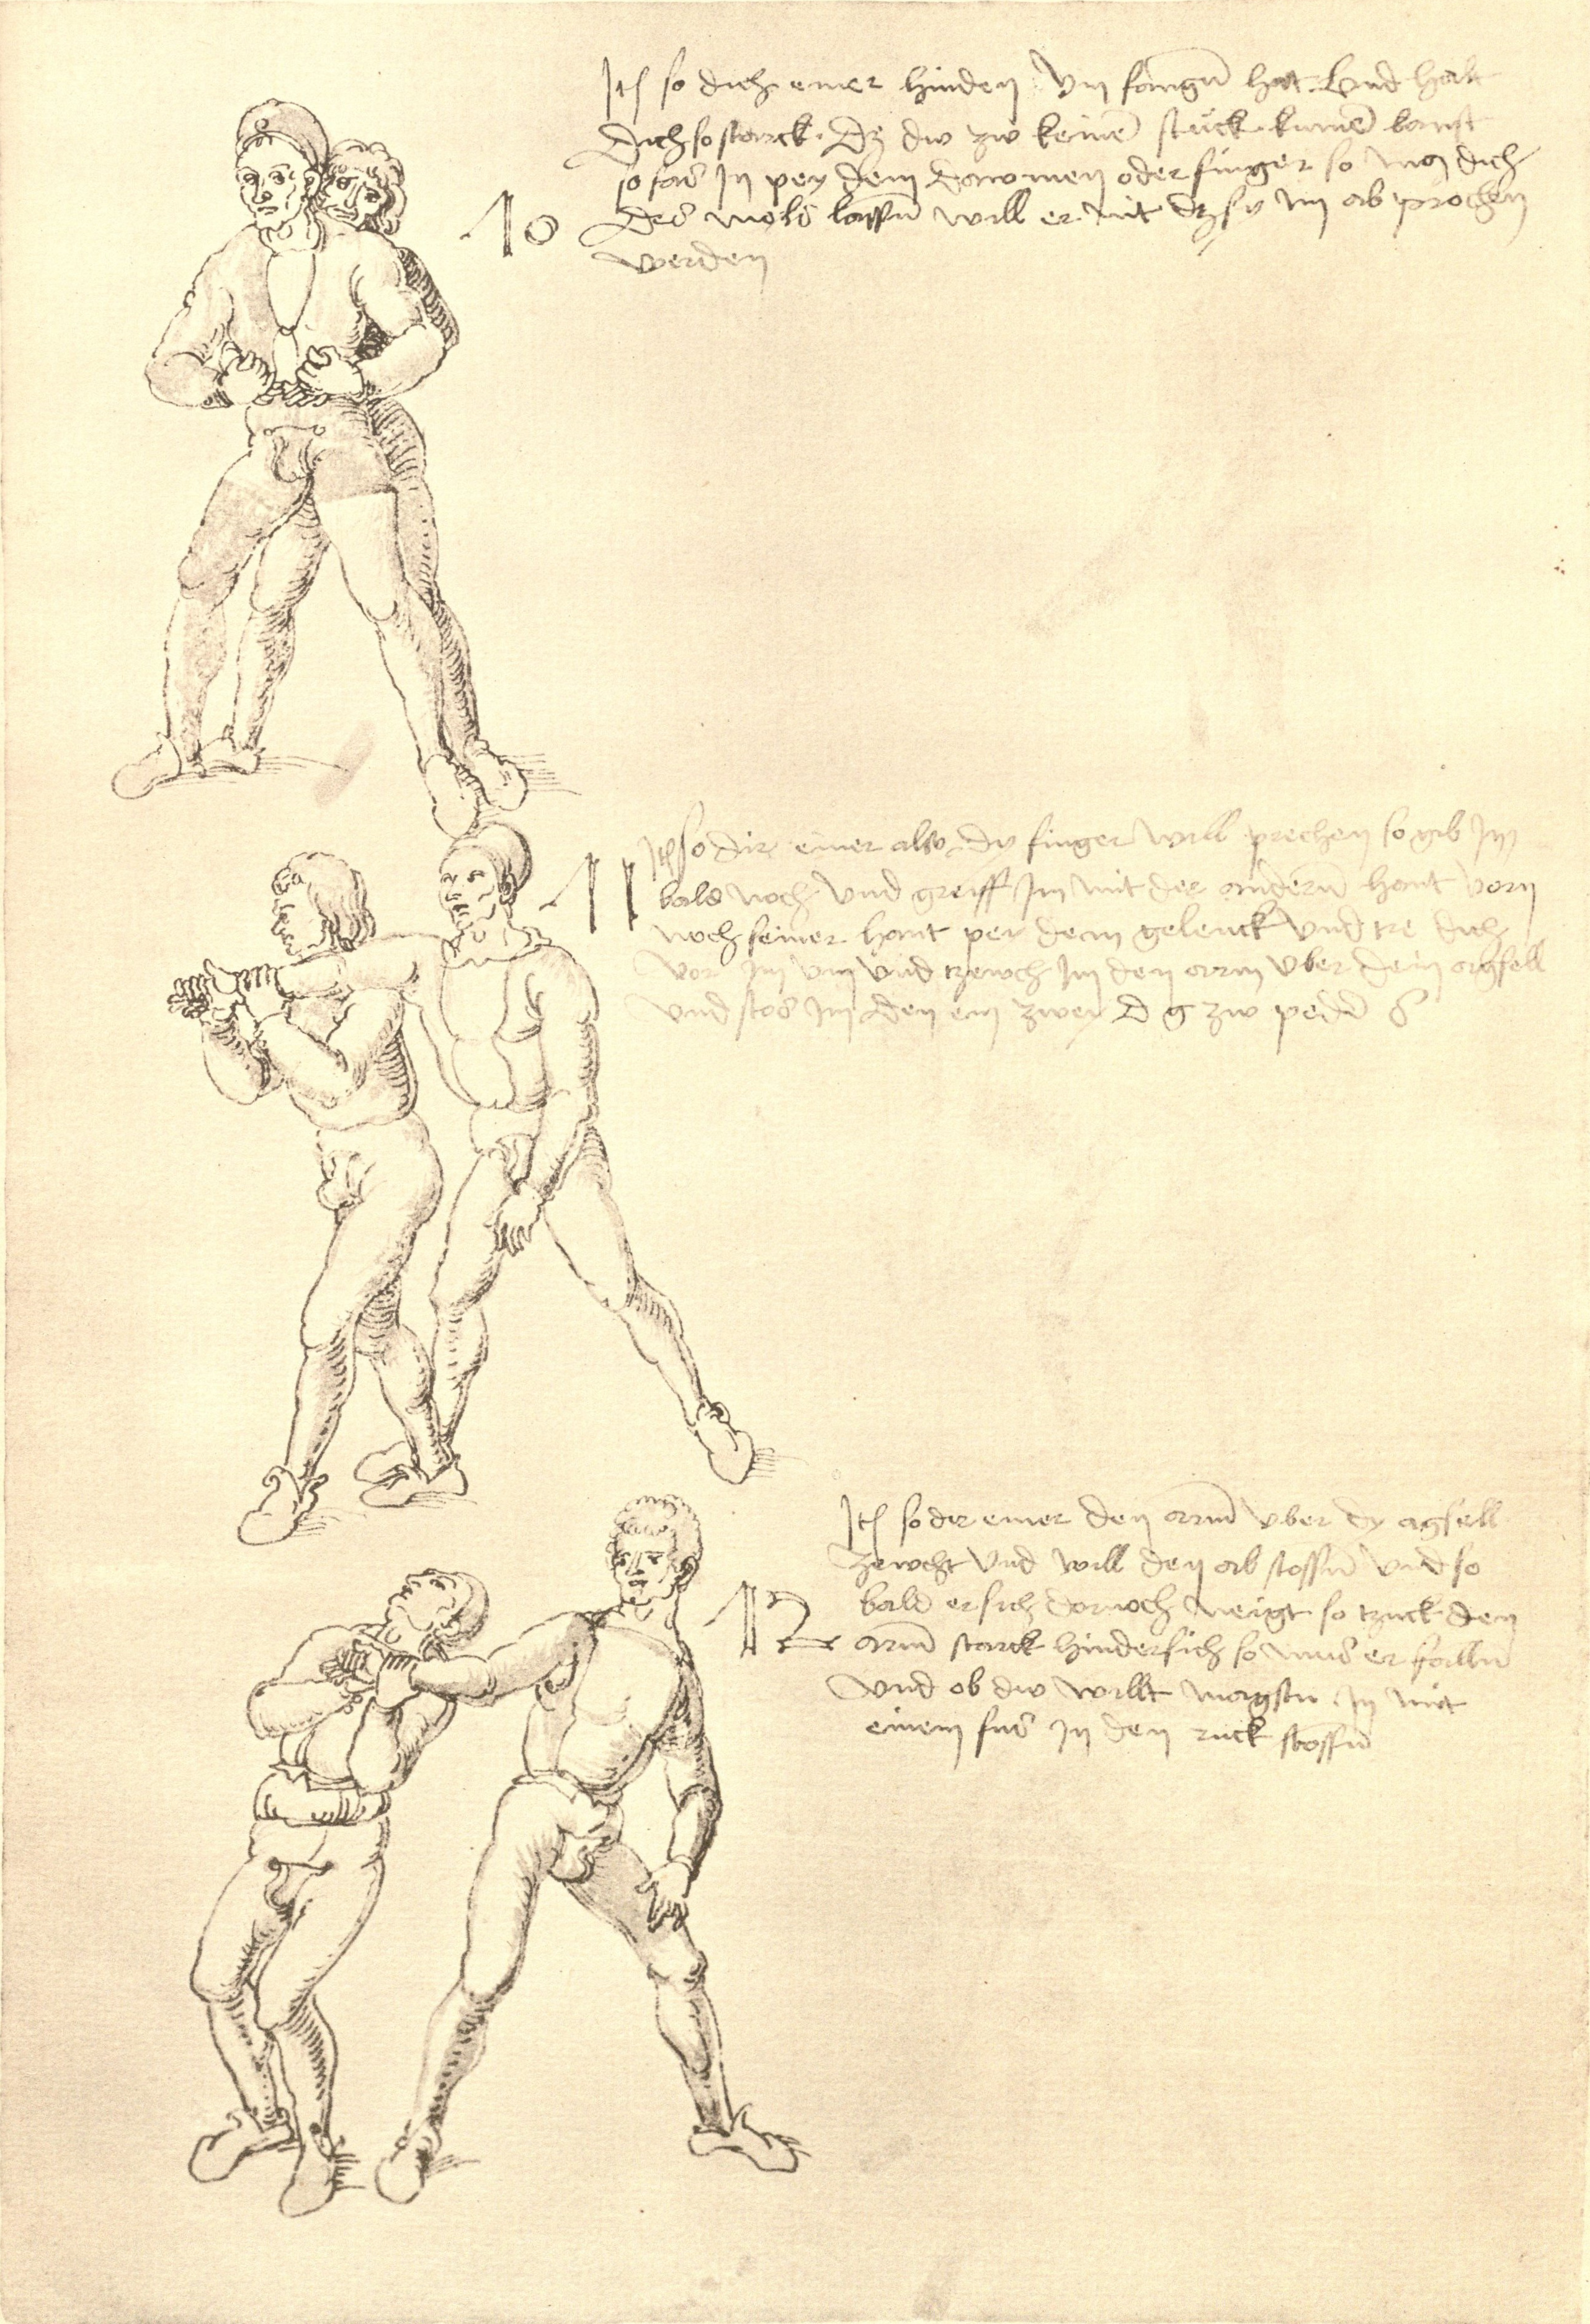 Itē so dich einer hinden vm fangn̄ hat vnd halt
dich so starck dz dw zw keinē stuck kumē kanst
so fas in pey dem dawmen oder finger so mus dich
10
des mols lassn̄ will er nit dz sy im ab prochen
werden
Itē so dir einer also dy finger will prechen so gib im
11
bald noch vnd greiff im mit der andern̄ hant vorn
noch seiner hant pey dem gelenck vnd tre dich
vor im vm vnd zewch im den arm vber dein achsell
vnd stos im den ein zwey zw
Itē so dir einer den arm̄ vber dy agsell
zewcht vnd will den ab stossn̄ vnd so
bald er sich dornoch neigt so zuck den
12
arm̄ starck hindersich so mus er falln̄
vnd ob dw willt magstu in mit
einem fus in den ruck stossn̄